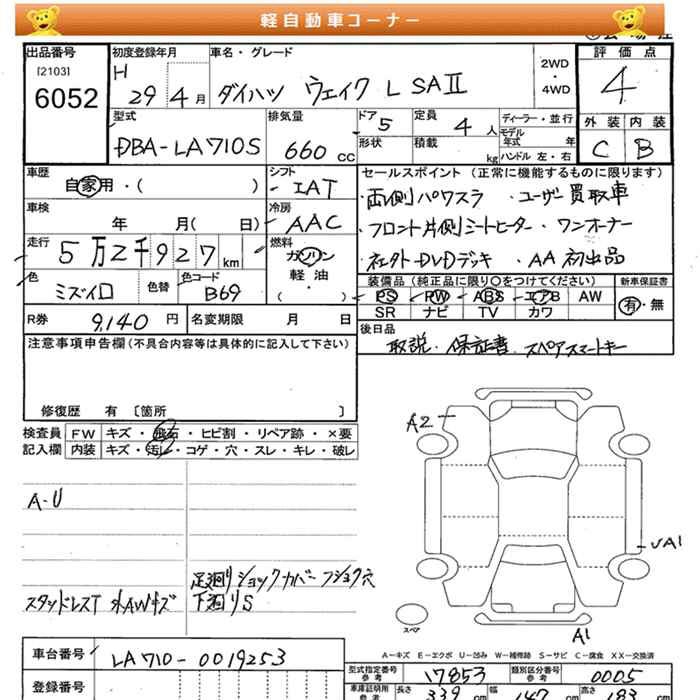 軽自動車コーナー
出品番号 初度登録年月 車名・グレード 評価点
[2103] 6052
H 29年4月 ダイハツ ウェイク L SAII 2WD・4WD 4
型式 排気量 ドア 定員 ディーラー・並行 外装 内装
DBA-LA710S 660cc 5 4人 モデル年式 年 C B
形状 積載 kg ハンドル 左・右
車歴 シフト セールスポイント (正常に機能するものに限ります)
自家用・( ) IAT ・両側パワスラ ・ユーザー買取車
車検 冷房
年 月(日) AAC ・フロント片側シートヒーター ・ワンオーナー
走行 燃料
5万2千927km ガソリン 軽油 ( ) ・社外DVDデッキ ・AA初出品
色 色替 色コード 装備品 (純正品に限り○をつけてください) 新車保証書
ミズイロ B69 PS ・ PW ・ ABS ・ エアB AW 有・無
SR ナビ TV カワ
R券 9,140円 名変期限 月 日 後日品
注意事項申告欄 (不具合内容等は具体的に記入して下さい) 取説・保証書・スペアスマートキー
修復歴 有 〔箇所 〕
検査員 FW キズ・飛石・ヒビ割・リペア跡・×要
記入欄 内装 キズ・汚レ・コゲ・穴・スレ・キレ・破レ
A2
A-U
UA1
足廻りショックカバーフショク穴
スタッドレスT 外AWキズ 下廻りS
スペア
A1
A-キズ E-エクボ U-凹み W-補修跡 S-サビ C-腐食 XX-交換済
車台番号 LA710-0019253
型式指定番号 参考 17853 類別区分番号 参考 0005
登録番号
車庫証明用 参考 長さ 339cm 幅 147cm 高さ 183cm